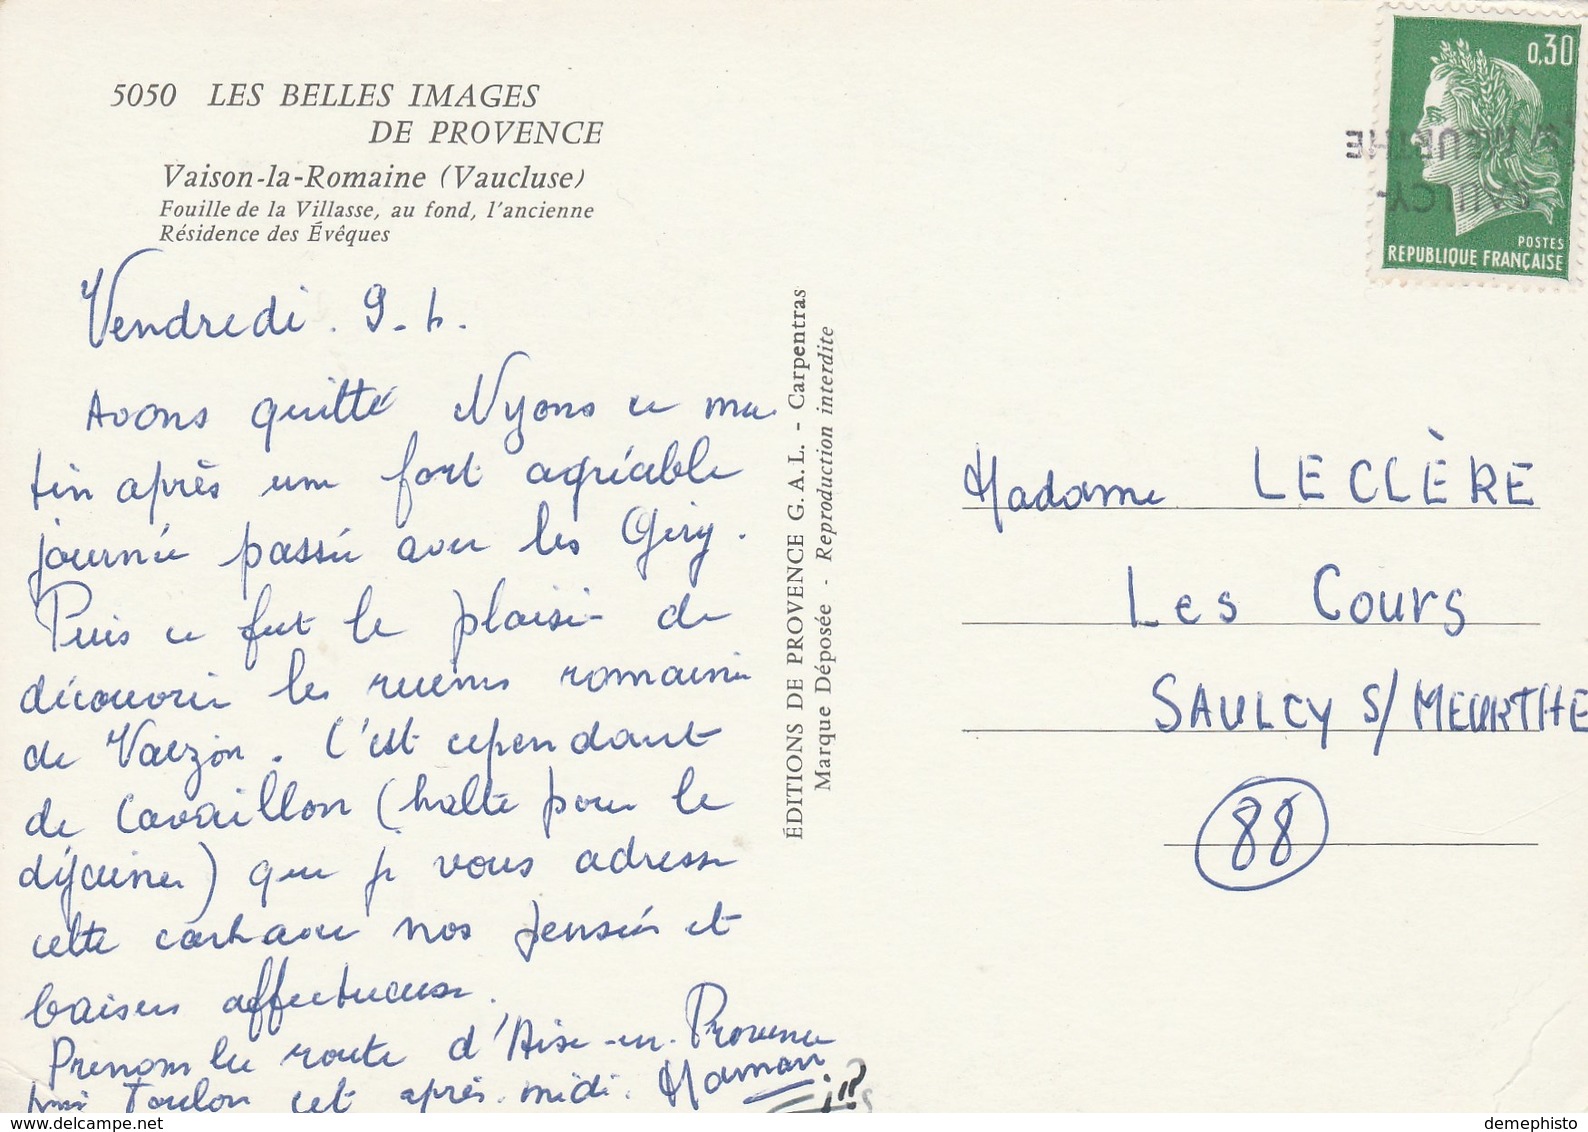 5050 LES BELLES IMAGES
DE PROVENCE
Vaison-la-Romaine (Vaucluse)
Fouille de la Villasse, au fond, l'ancienne
Résidence des Évêques
Vendredi. 9-
Avons quitté Nyons ce ma
tin après une fort agréable
journée passée avec les Giry.
Puis ce fut le plaisir de
découvrir les ruines romaines
de Vaizon. C'est cependant
de Cavaillon (halte pour le
déjeuner) que je vous adresse
cette carte avec nos pensées et
baisers affectueux.
Prenons la route d'Aix-en-Provence
Toulon cet après-midi. Maman
ÉDITIONS DE PROVENCE G.A.L. - Carpentras
Marque Déposée - Reproduction interdite
0,30
POSTES
REPUBLIQUE FRANÇAISE
SAULCY-
S/MEURTHE
Madame LECLÈRE
Les Cours
SAULCY S/MEURTHE
88
demephisto